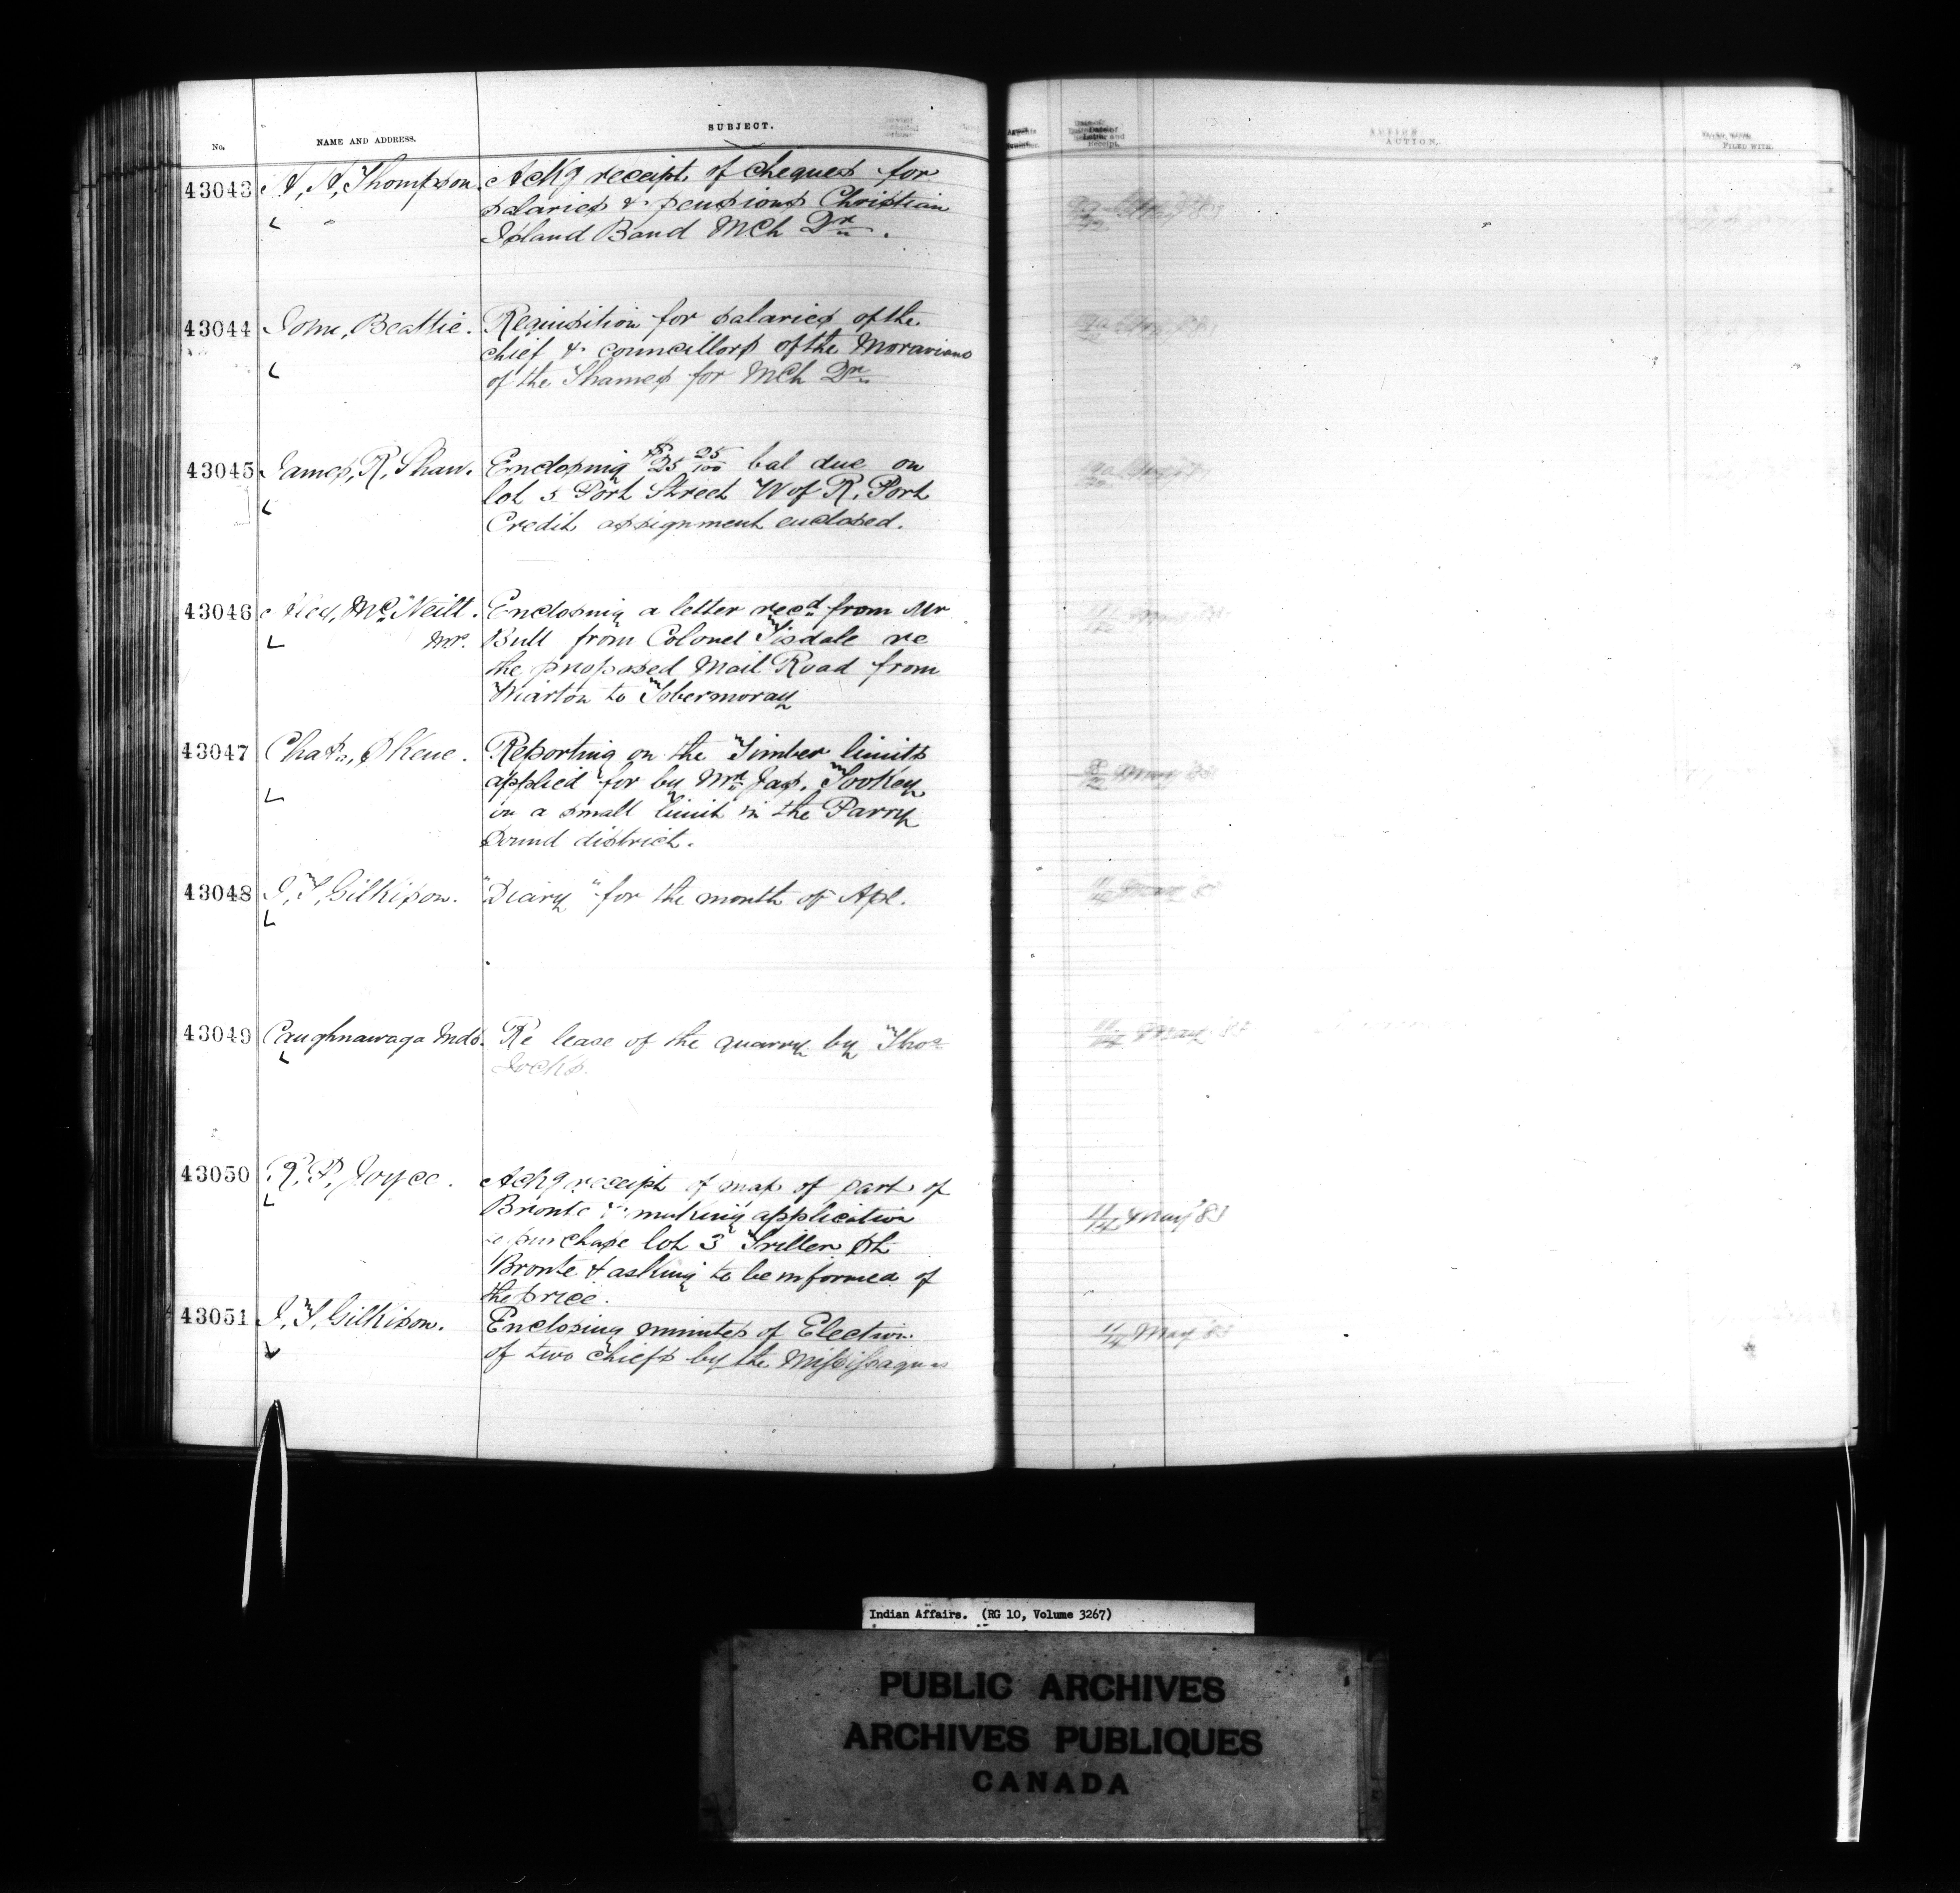 No.
NAME AND ADDRESS.
SUBJECT.
Date of Letter and Receipt.
ACTION.
FILED WITH.
43043 A, A, Thompson. Ackg receipt of cheques for
salaries & pensions Christian
Island Band Mch Qr.
43044 John, Beattie. Requisition for salaries of the
chief & councillors of the Moravians
of the Thames for Mch Qr
43045 James, R, Shaw. Enclosing $25 25/100 bal due on
lot 5 Port Street W of R, Port
Credit assignment enclosed.
43046 Alex, McNeill. Enclosing a letter recd from Mr
MP. Bull from Colonel Tisdale re
the proposed Mail Road from
Wiarton to Tobermoray
43047 Chas, Skene. Reporting on the Timber limits
applied for by Mr Jas. Tookey
on a small limit in the Parry
Sound district.
8/22 May 83
43048 J, T, Gilkison. "Diary" for the month of Apl.
11/ May 83
43049 Caughnawaga Inds. Re lease of the quarry by Thos
Jocks.
11/14 May 83
43050 R, P, Joyce. Ackg receipt of map of part of
Bronte & making application
purchase lot 3 Triller St
Bronte & asking to be informed of
the price.
11/14 May 83
43051 J, T, Gilkison. Enclosing minutes of Election
of two chiefs by the Mississaguas
11/14 May 83
Indian Affairs. (RG 10, Volume 3267)
PUBLIC ARCHIVES
ARCHIVES PUBLIQUES
CANADA